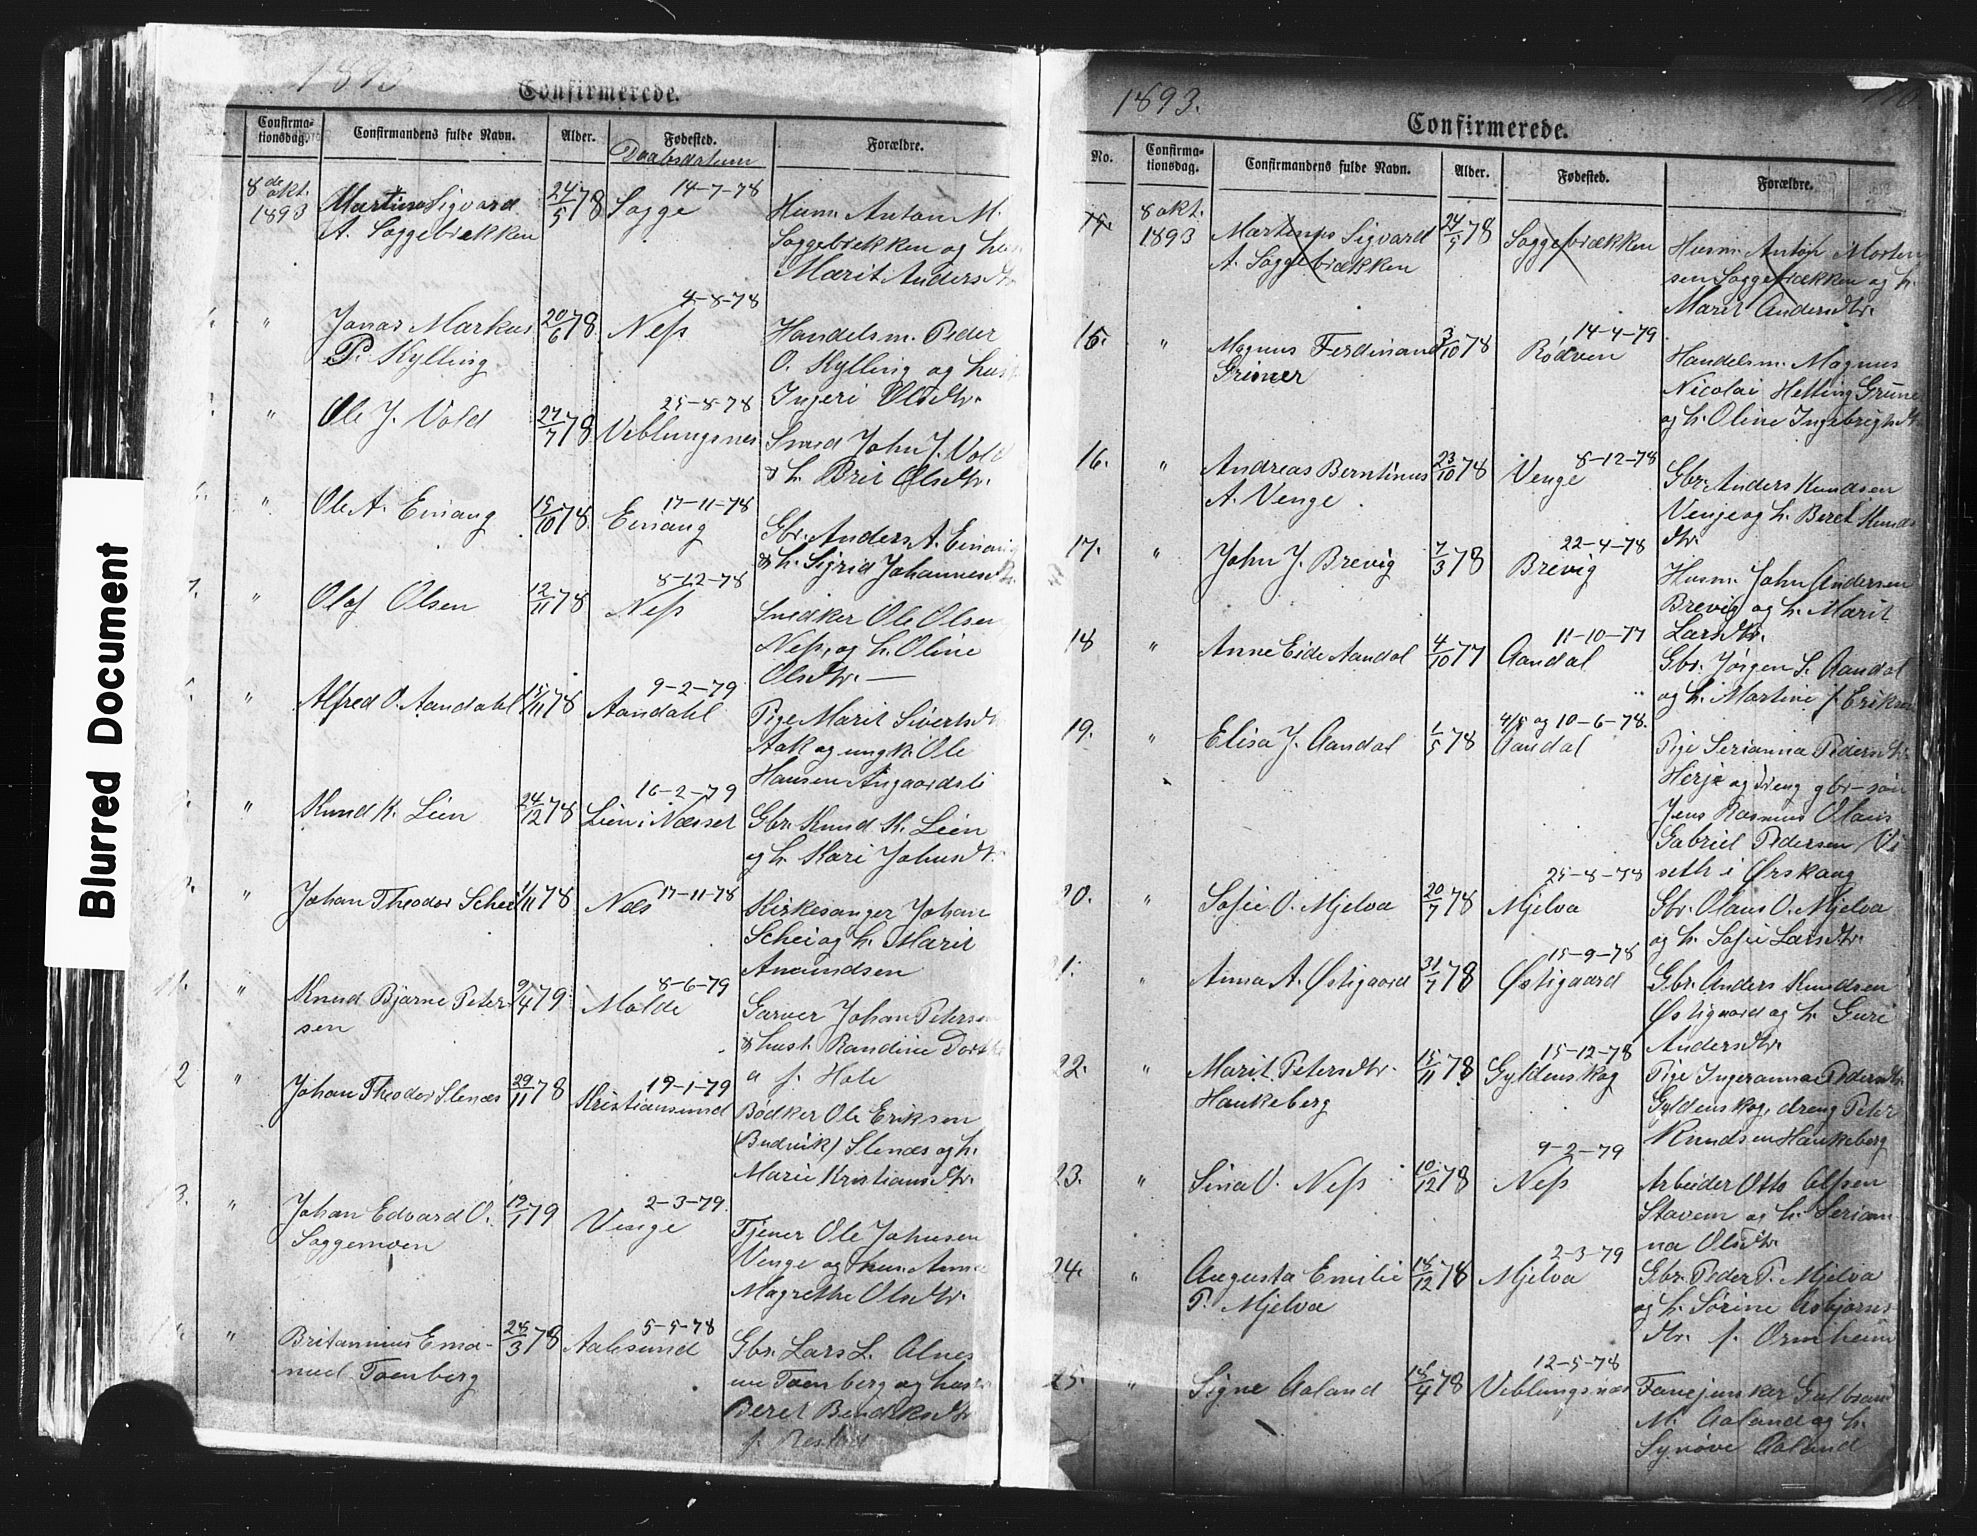 Blurred Document
1893
Confirmerede.
Confirma-
tionsdag.
Confirmandens fulde Navn.
Alder.
Fødested.
Daabsdatum
Forældre.
8de okt.
1893
Martinus Sigvard
A. Soggebrekken
24/5 78
14-7-78
Sogge
Husm. Anton M.
Soggebrekken og
Marit Anders
"
Jonas Markus
P. Kylling
20/6 78
4-8-78
Neß
Handelsm. Peder
O. Kylling og
Ingeri Olsdtr.
"
Ole J. Vold
27/7 78
25-8-78
Veblungsnes
Smed John J. Vold
& h. Brit Olsdtr.
"
Ole A. Einang
15/10 78
17-11-78
Einang
Gbr. Anders A. Einang
& h. Sigrid Johannesd
7.
"
Olaf Olsen
12/11 78
8-12-78
Neß
Snedker Ole Olsen
Neß, og h. Oline
Olsdtr. —
"
Alfred O. Aandahl
15/11 78
9-2-79
Aandahl
Pige Marit Sivertsd
Aak og ungk. Ole
Hansen Aagaardsli
"
Knud K. Lien
24/12 78
16-2-79
Lien i Nesset
Gbr. Knud K. Lien
og h. Kari Johnsd
"
Johan Theodor Schei
1/11 78
17-11-78
Næs
Kirkesanger Johan
Schei og h. Marit
Amundsen
11.
"
Knud Bjarne Peter-
sen
9/4 79
8-6-79
Molde
Garver Johan Petersen
& hust. Randine Dorthe
a f. Hole
2
"
Johan Theodor Slenæs
29/11 78
19-1-79
Kristiansund
Bødker Ole Eriksen
(Budvik) Slenæs og h.
Marie Kristiansdtr.
3.
"
Johan Edvard O.
Soggemoen
19/1 79
2-3-79.
Venge
Tjener Ole Johnsen
Venge og hus. Anna
Magrethe Olsdtr.
"
Britannius Ema-
nuel Toenberg
28/3 78
5-5-78
Aalesund
Gbr. Lars L. Alnes
Toenberg og
Beret Bendiksdtr
f.
1893.
Confirmerede.
No.
Confirma-
tionsdag.
Confirmandens fulde Navn.
Alder.
Fødested.
Forældre.
15.
8 okt.
1893
Martinus Sigvard
A. Soggebrækken
24/5 78
Soggebrækken
Husm. Anton Morten
sen Soggebrækken og h.
Marit Andersdtr.
15.
"
Magnus Ferdinand
Griner
3/10 78
14-4-79
Rødven
Handelsm. Magnus
Nicolai Helting
og h. Oline Ingebrigtsdtr
16.
"
Andreas Berntinus
A. Venge
23/10 78
8-12-78
Venge
Gbr. Anders Knudsen
Venge og h. Beret Knuds
dtr.
17.
"
John J. Brevig
7/3 78
22-4-78
Brevig
Husm. John Andersen
Brevig og h. Marit
Larsdtr.
18
"
Anne Eide Aandal
4/10 77
11-10-77
Aandal
Gbr. Jørgen S. Aandal
og h. Martine f. Eriksen
19.
"
Elisa J. Aandal
1/5 78
4/5 og 10-6-78.
Aandal
Pige Serianna Pedersdtr.
Herje og dreng gbr-søn
Jens Rasmus Olaus
Gabriel Pedersen Vi-
seth i Ørskaug
20.
"
Sofie O. Mjelva
20/7 78
25-8-78
Mjelva
Gbr. Olaus O. Mjelva
og h. Sofie Larsdtr.
21.
"
Anna A. Østigaard
31/7 78
15-9-78
Østigaard
Gbr. Anders Knudsen
Østigaard og h. Guri
Andersdtr.
22.
"
Marit Petersdtr.
Haukeberg
15/11 78
15-12-78
Gyldenskog
Pige Ingeranna Pedersdtr.
Gyldenskog, dreng Peter
Knudsen Haukeberg
23.
"
Sina O. Neß
10/12 78
9-2-79
Neß
Arbeider Otto Olsen
Stavem og h. Serian-
na Olsdtr.
24.
"
Augusta Emilie
P. Mjelva
18/12 78
2-3-79
Mjelva
Gbr. Peder P. Mjelva
og h. Sørine Asbjørns
dtr. f. Ormheim
25.
"
Signe Aaland
18/4 78
12-5-78
Veblungsnæs
Fanejunker Gulbrand
M. Aaland og h.
Synøve Aaland